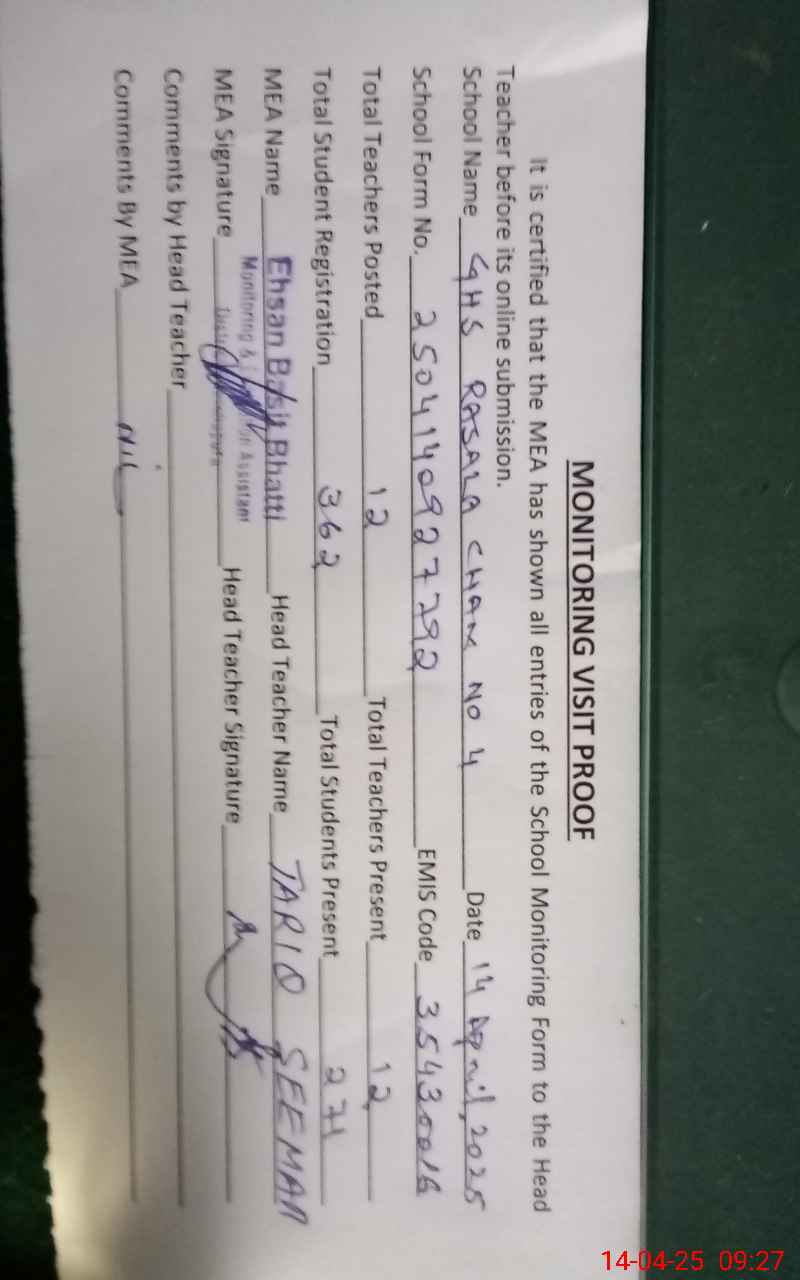 MONITORING VISIT PROOF
It is certified that the MEA has shown all entries of the School Monitoring Form to the Head
Teacher before its online submission.
School Name GHS RASALA CHAK No 4 Date 14 April, 2025
School Form No. 2504140927792 EMIS Code 35430016
Total Teachers Posted 12 Total Teachers Present 12
Total Student Registration 362 Total Students Present 271
MEA Name Ehsan Basit Bhatti Head Teacher Name TARIQ SEEMAB
Monitoring & Assistant
MEA Signature Head Teacher Signature
Comments by Head Teacher
Comments By MEA NIL
14-04-25 09:27